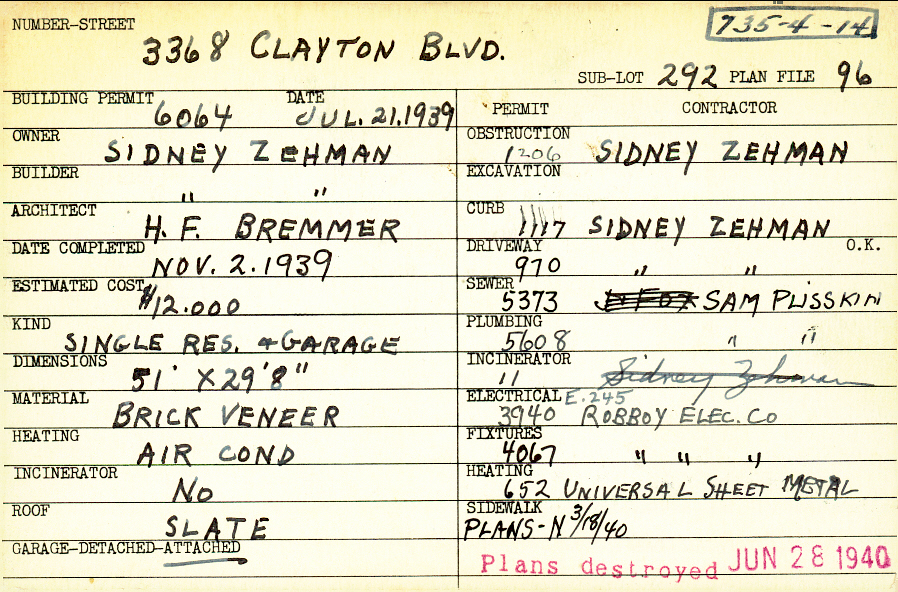 735-4-14
NUMBER-STREET
3368 CLAYTON BLVD.
SUB-LOT 292 PLAN FILE 96
BUILDING PERMIT 6064 DATE JUL. 21. 1939
OWNER SIDNEY ZEHMAN
BUILDER " "
ARCHITECT H. F. BREMMER
DATE COMPLETED NOV. 2. 1939
ESTIMATED COST $12.000
KIND SINGLE RES. + GARAGE
DIMENSIONS 51' X 29'8"
MATERIAL BRICK VENEER
HEATING AIR COND
INCINERATOR NO
ROOF SLATE
GARAGE-DETACHED-ATTACHED
PERMIT CONTRACTOR
OBSTRUCTION 1206 SIDNEY ZEHMAN
EXCAVATION
CURB 1117 SIDNEY ZEHMAN
DRIVEWAY 970 " " O.K.
SEWER 5373 J. FOX SAM PLISSKIN
PLUMBING 5608 " "
INCINERATOR 11 Sidney Zehman
ELECTRICAL E.245
3940 ROBBOY ELEC. CO
FIXTURES 4067 " " "
HEATING 652 UNIVERSAL SHEET METAL
SIDEWALK
PLANS-N 3/18/40
Plans destroyed JUN 28 1940